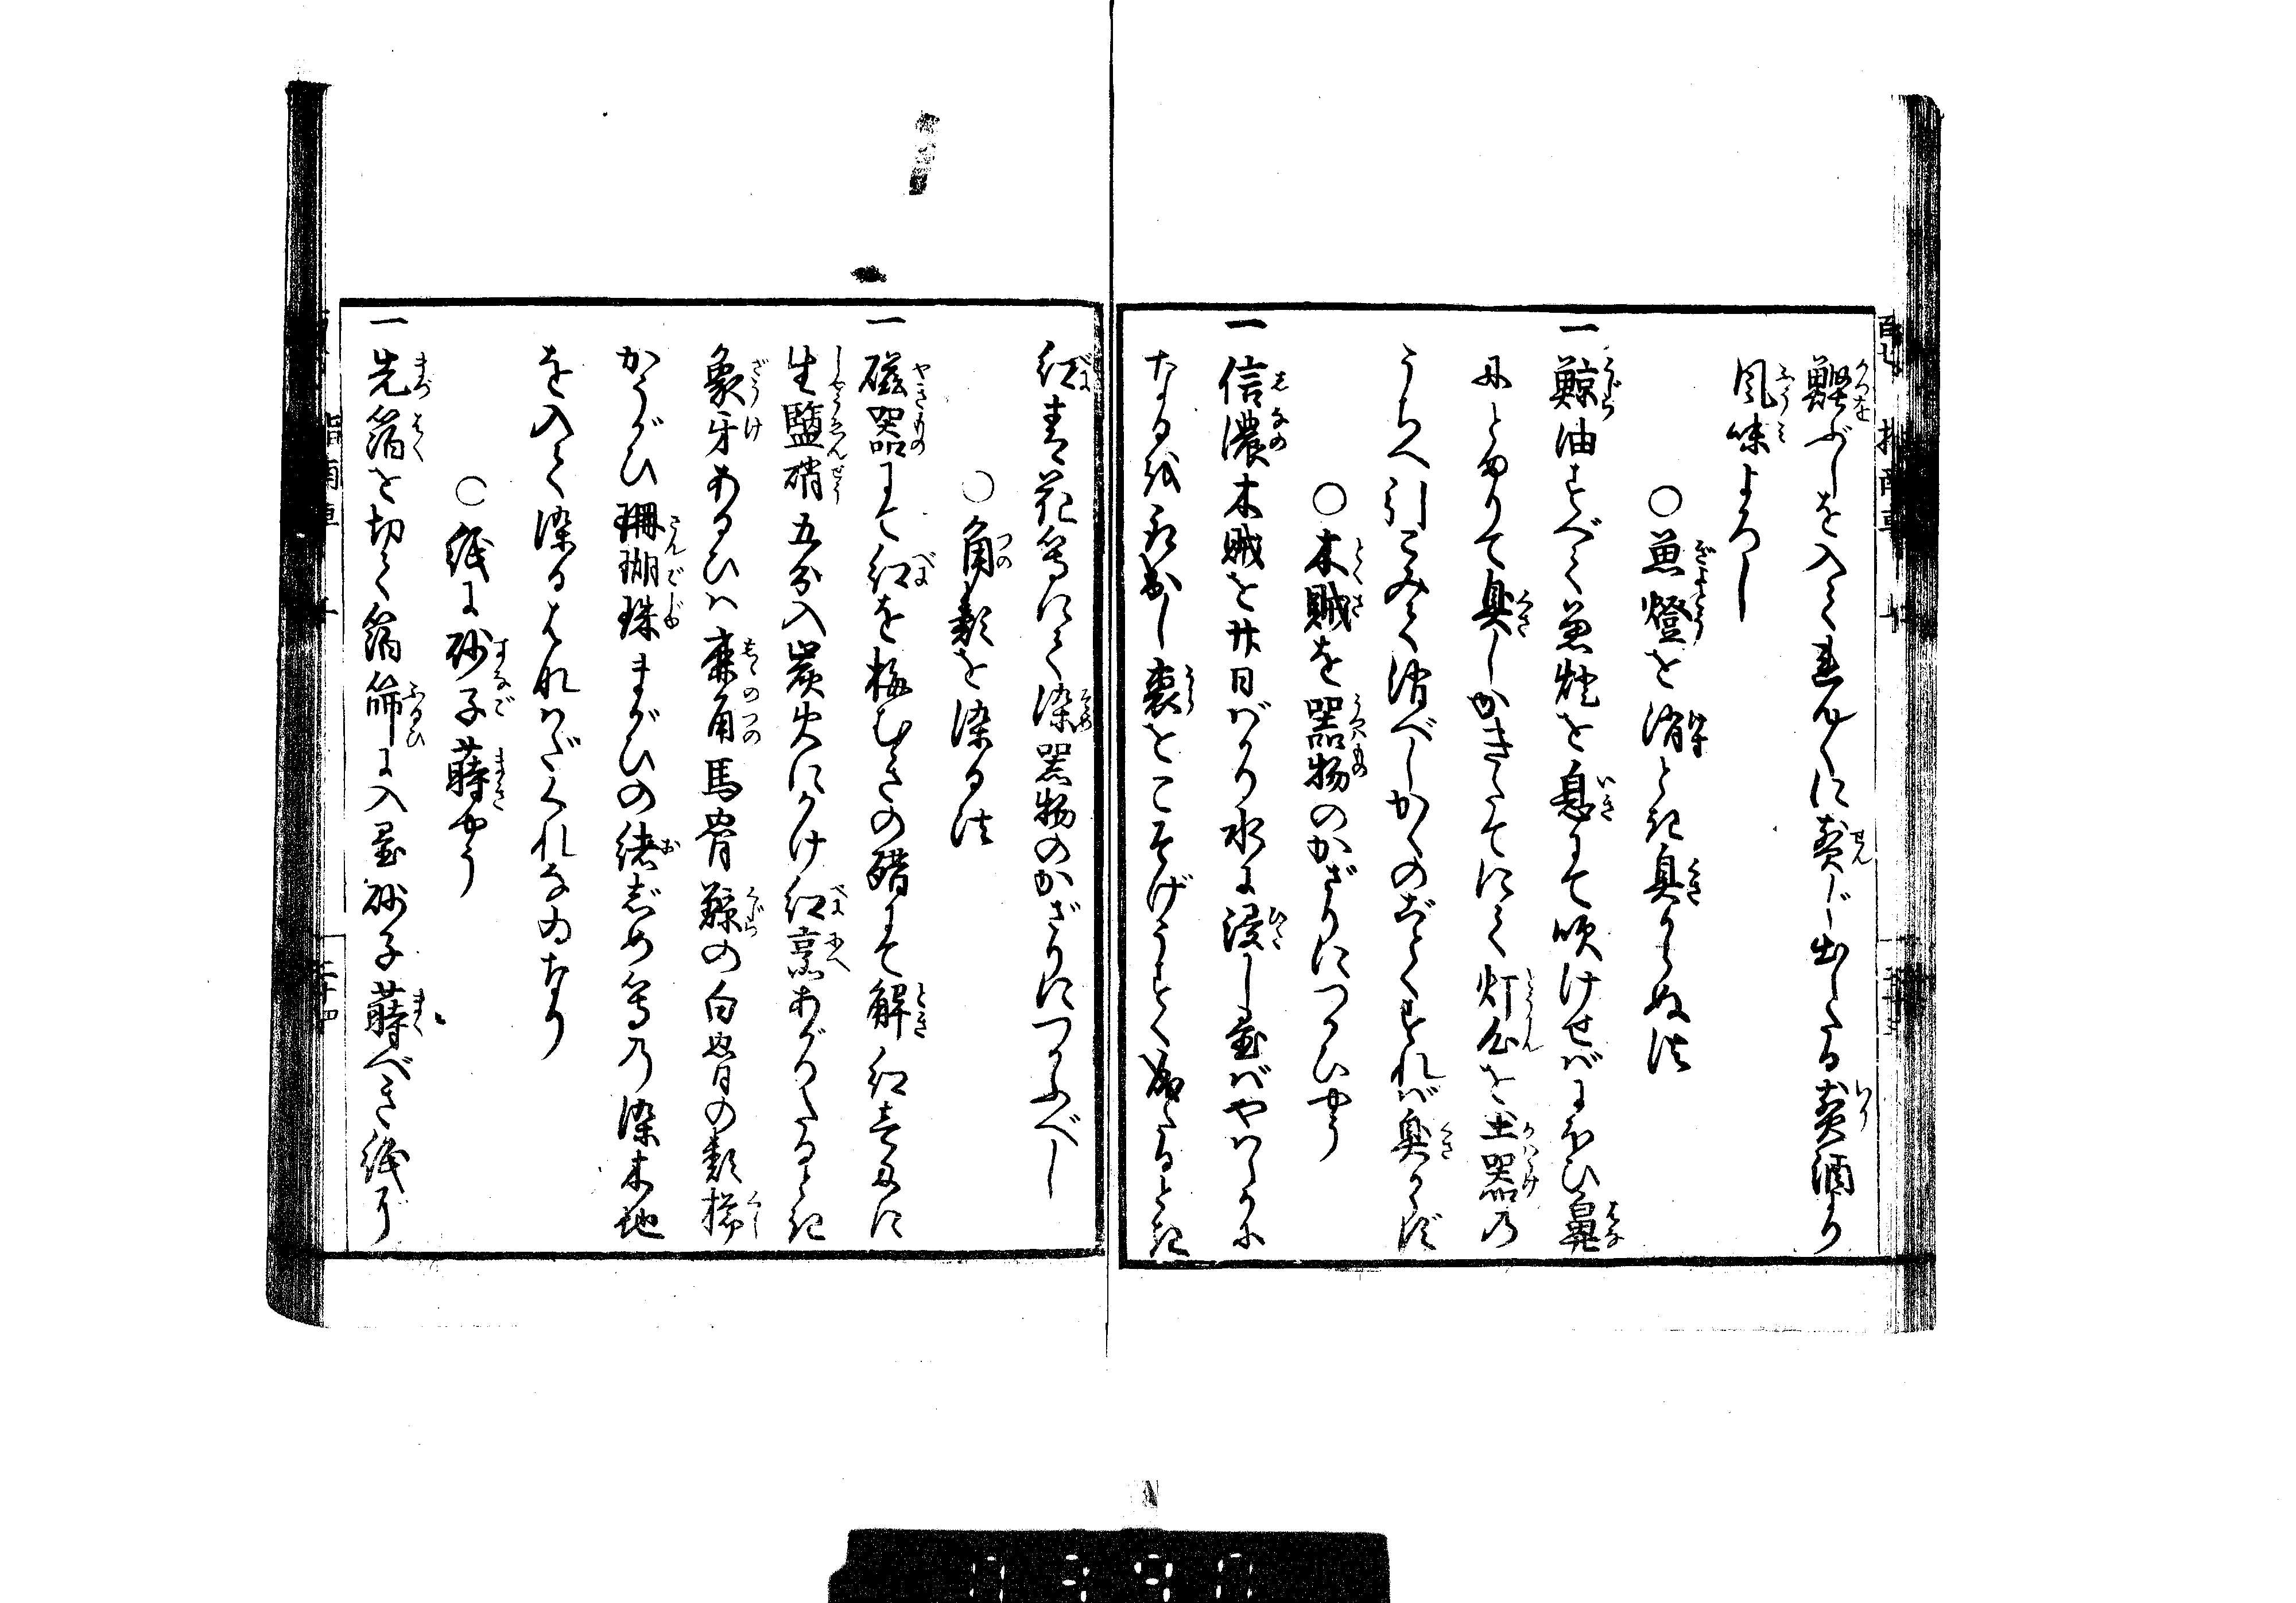 鰹ぶしを入て煮じ出したる煎酒より
風味よろし
○魚燈を消とき臭からぬ法
一鯨油すべて魚燈を息にて吹けせばにほひ鼻
にとゞまりて臭しかきたてにて灯心を土器の
うちへ引こみて消べしかくのごとくすれば臭からず
○木賊を器物のかざりにつかひやう
一信濃木賊を廿日ばかり水に浸し置ばやはらかに
なるを取出し裏をこそげうすく成たるとき
紅青花等にて染器物のかざりにつかふべし
○角類を染る法
一磁器にて紅を梅むきの醋にて解紅壱匁に
生塩硝五分入炭火にかけ紅烹あがりたるとき
象牙あるひは麋角馬骨鯨の白骨の類櫛
かうがひ珊瑚珠まがひの緒じめ等の染木地
を入て染るはなはだくれなゐなり
○紙に砂子蒔やう
一先箔を切て箔篩に入置砂子蒔べき紙が